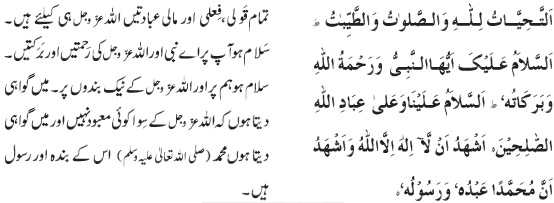 اَلتَّحِيَّاتُ لِلّٰهِ وَالصَّلَوٰتُ وَالطَّيِّبٰتُ ط
اَلسَّلَامُ عَلَيْكَ اَيُّهَا النَّبِيُّ وَرَحْمَةُ اللهِ
وَبَرَكَاتُهٗ ط اَلسَّلَامُ عَلَيْنَا وَعَلٰى عِبَادِ اللهِ
الصّٰلِحِيْنَ، اَشْهَدُ اَنْ لَّآ اِلٰهَ اِلَّا اللهُ وَاَشْهَدُ
اَنَّ مُحَمَّدًا عَبْدُهٗ وَرَسُوْلُهٗ،
تمام قَولی، فِعلی اور مالی عبادتیں اللہ عزّوجل ہی کیلئے ہیں۔
سَلام ہو آپ پر اے نبی اور اللہ عزّوجل کی رَحمتیں اور بَرَکتیں۔
سلام ہو ہم پر اور اللہ عزّوجل کے نیک بندوں پر۔ میں گواہی
دیتا ہوں کہ اللہ عزّوجل کے سِوا کوئی معبود نہیں اور میں گواہی
دیتا ہوں محمد (صلی اللہ تعالیٰ علیہ وسلم) اس کے بندہ اور رسول
ہیں۔